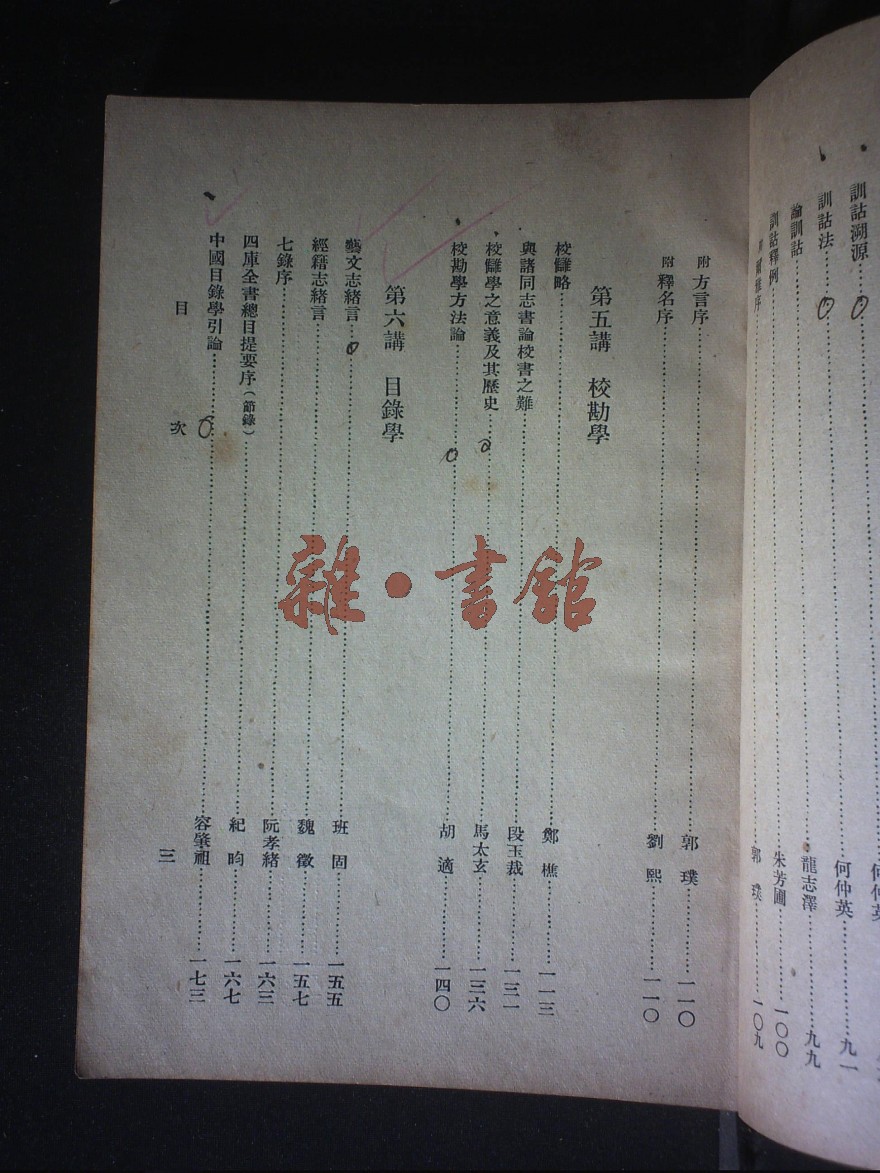 訓詁溯源
訓詁法……何仲英……九一
論訓詁……龍志澤……九九
訓詁釋例……朱芳圃……一〇〇
附 爾雅序……郭璞……一〇九
附 方言序……郭璞……一一〇
附 釋名序……劉熙……一一〇
第五講 校勘學
校讎略……鄭樵……一一三
與諸同志書論校書之難……段玉裁……一三一
校讎學之意義及其歷史……馬太玄……一三六
校勘學方法論……胡適……一四〇
第六講 目錄學
藝文志緒言……班固……一五五
經籍志緒言……魏徵……一五七
七錄序……阮孝緒……一六三
四庫全書總目提要序(節錄)……紀昀……一六七
中國目錄學引論……容肇祖……一七三
目次 三
雜·書館